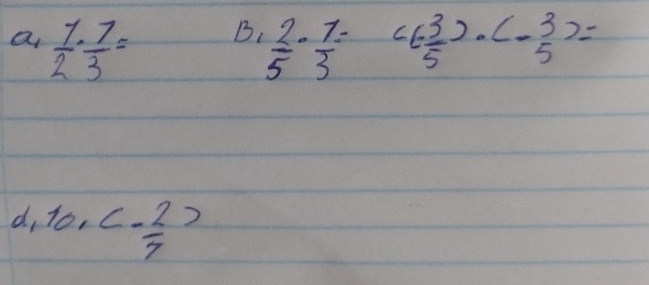 a, 1/2 · 1/3 = B, 2/5 · 1/3 = c(-3/5) · (-3/5) =
d, 10 · (-2/7)